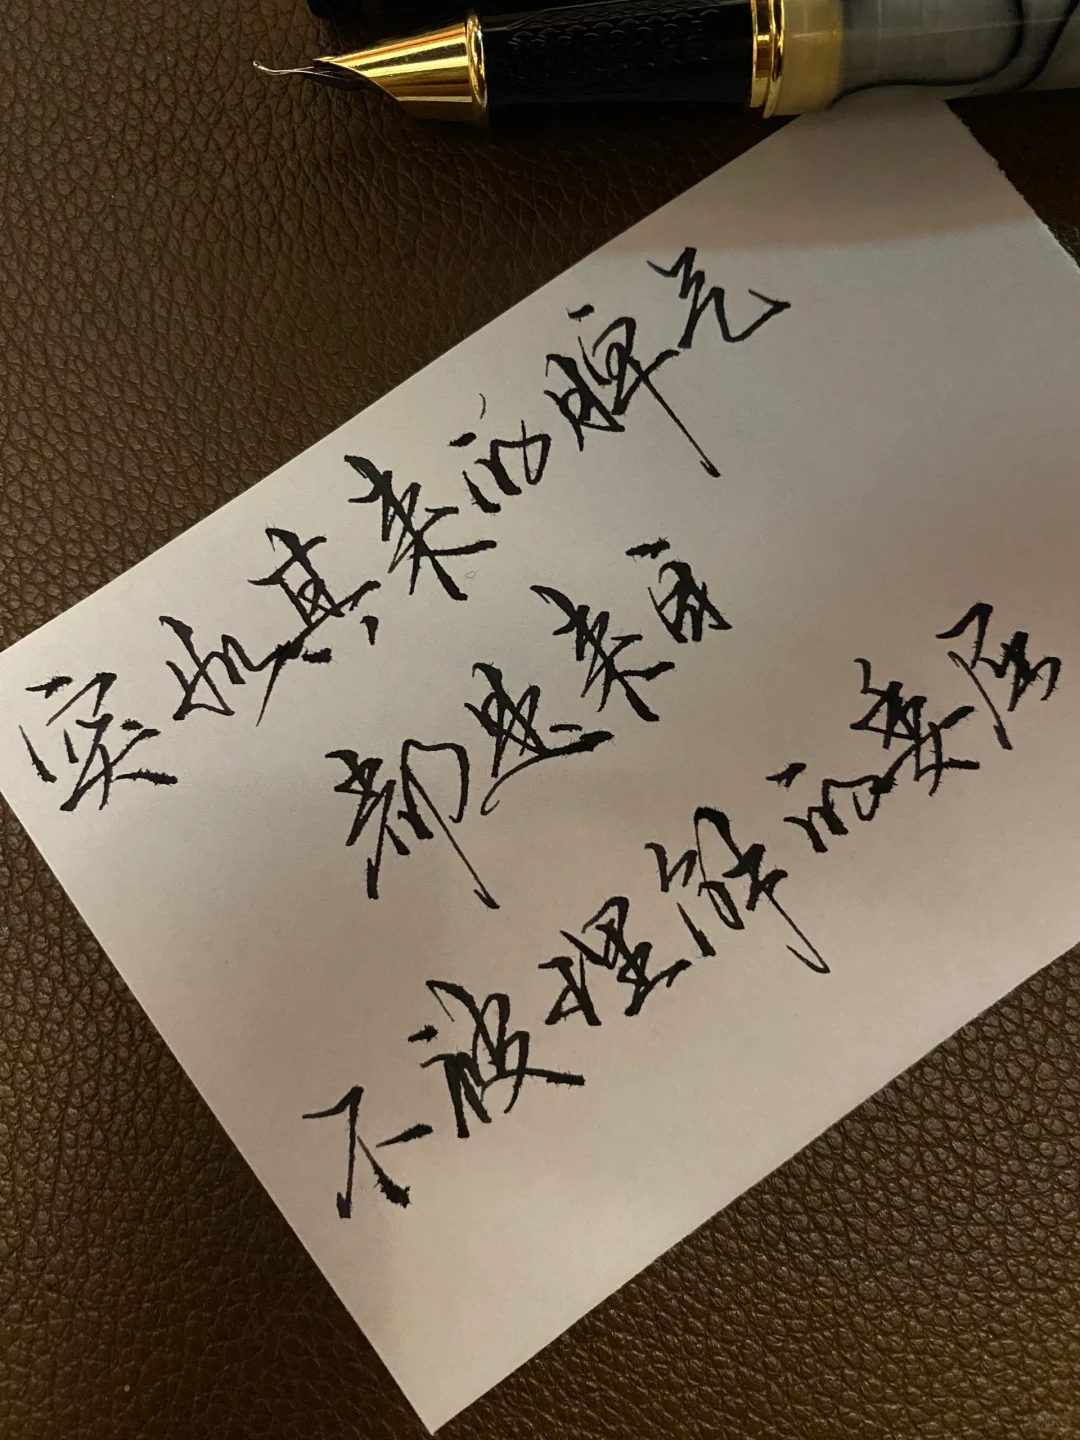 突如其来的脾气
都是来自
不被理解的委屈